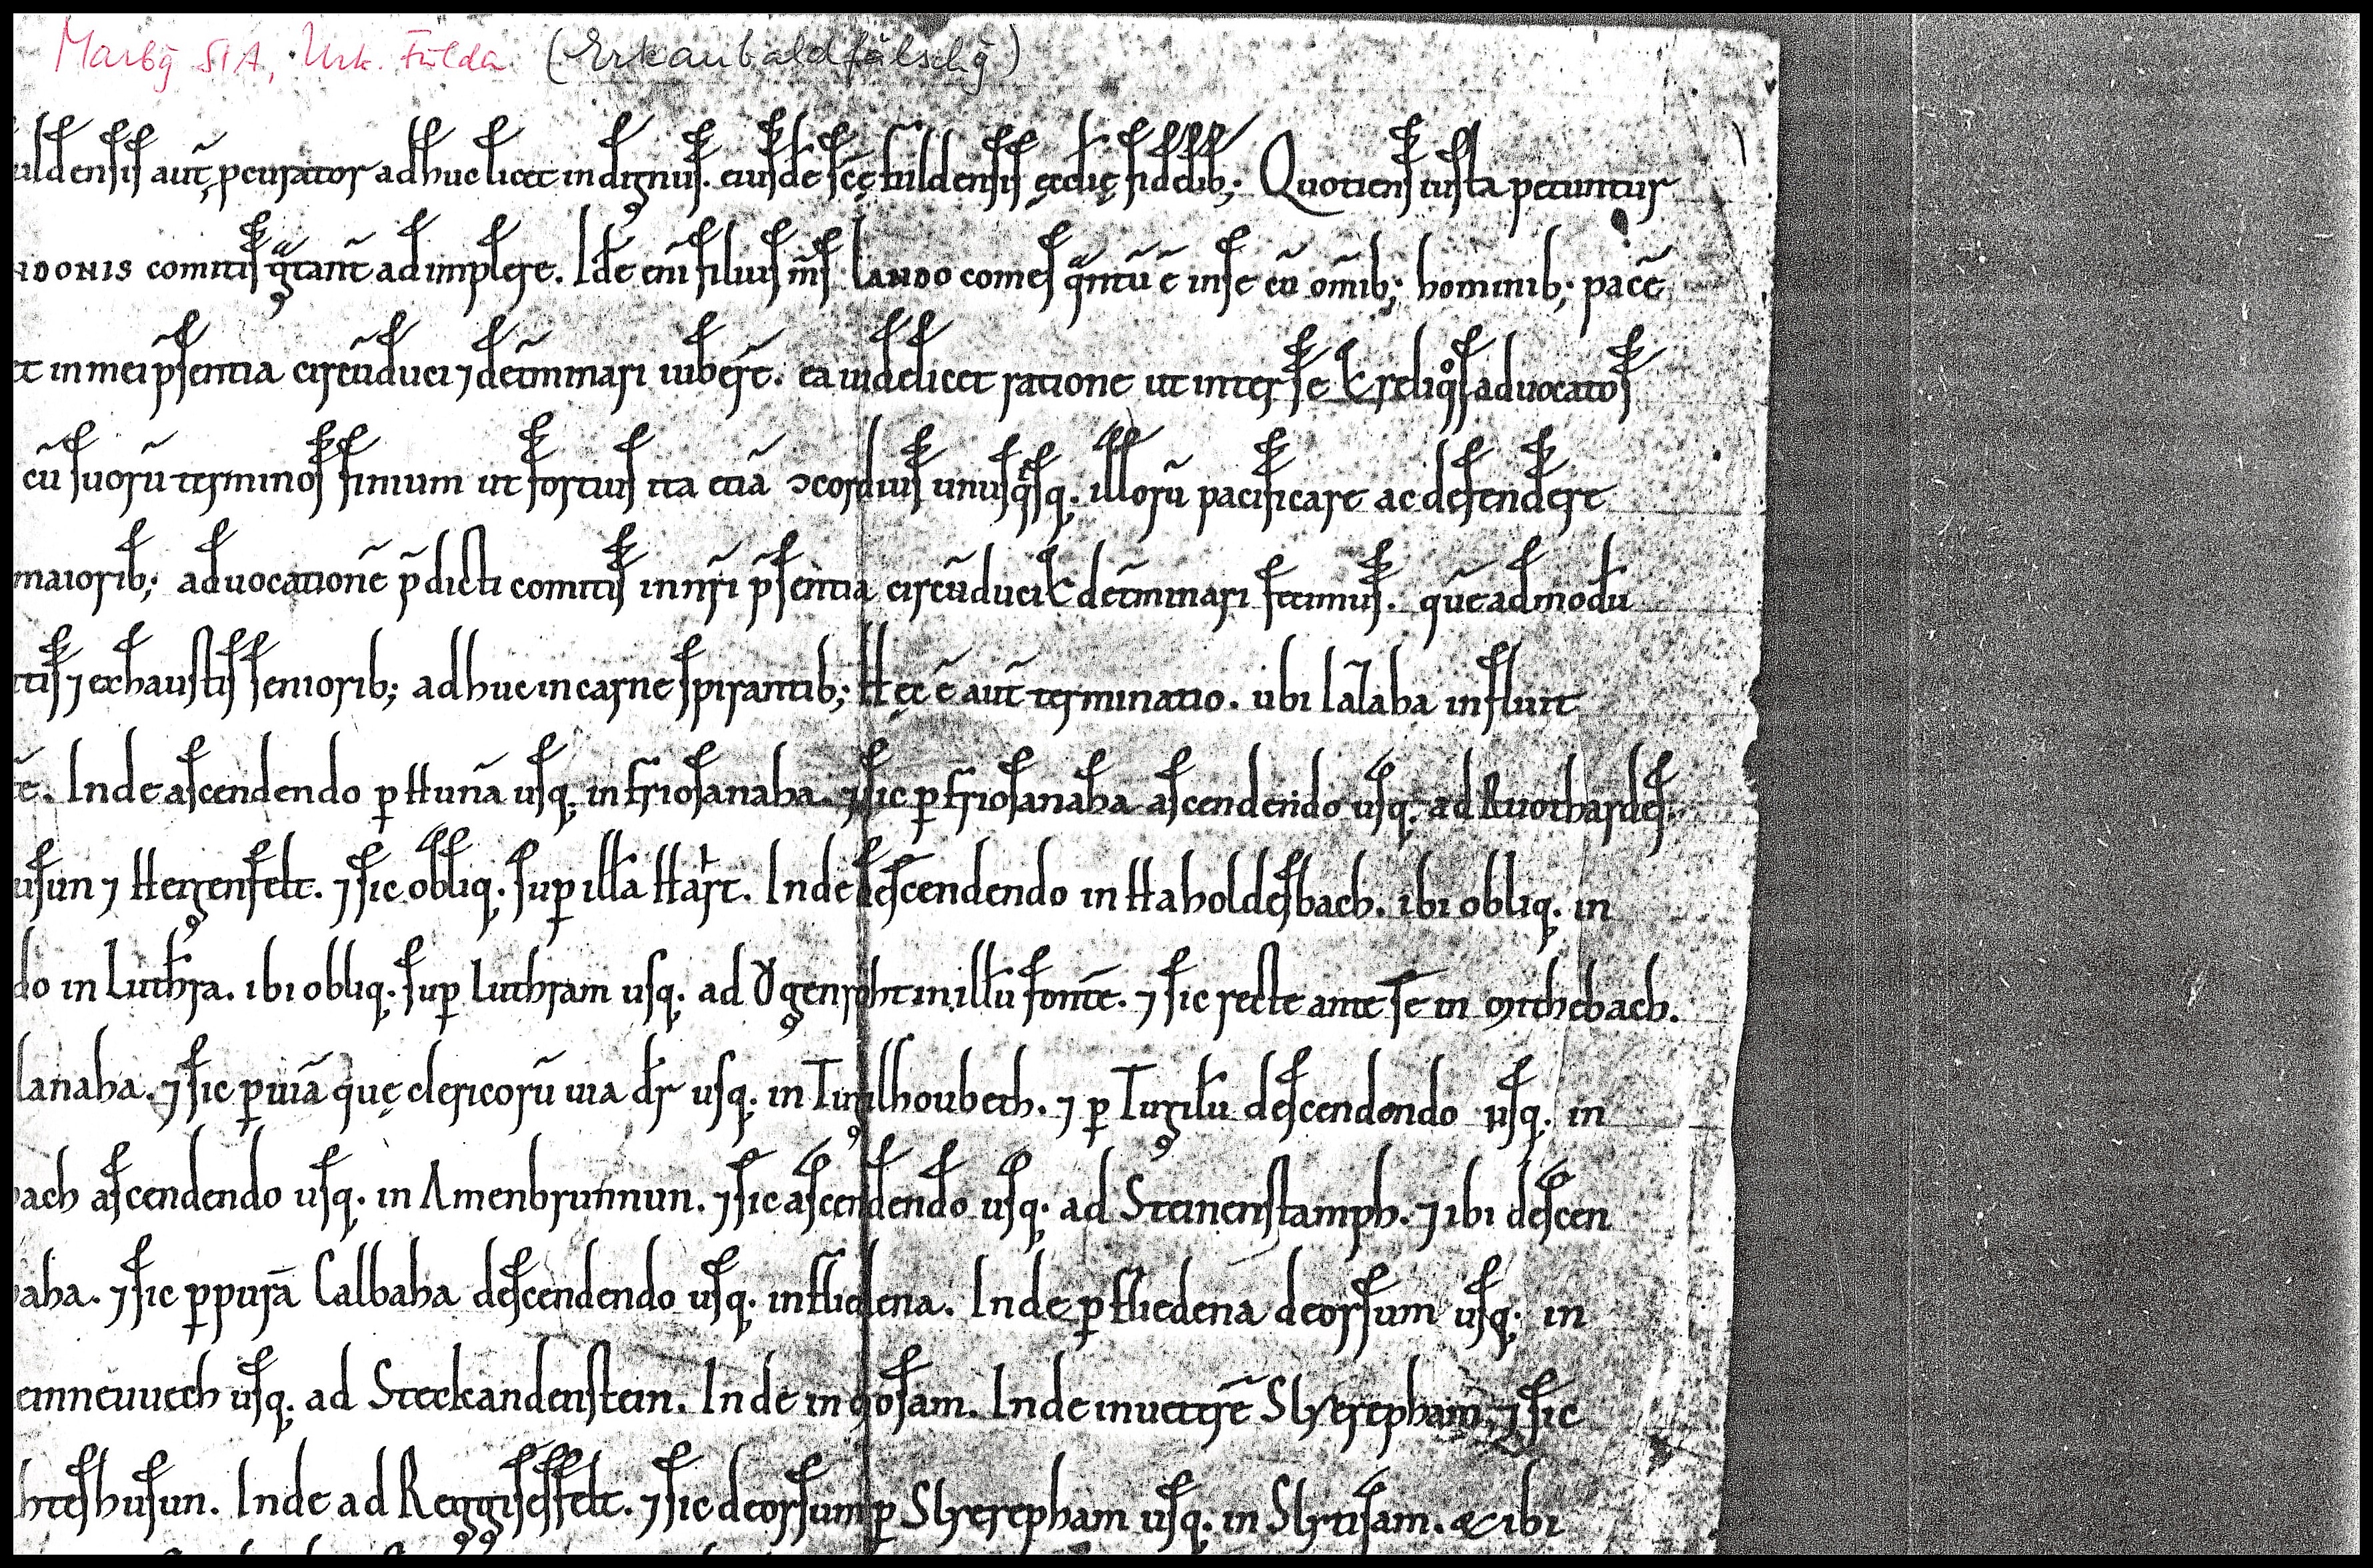 Marbg StA, Urk. Fulda (Erkanbaldfälschg)
uldensis aut̄ pcurator adhuc licet indignus. eiusdē scę fuldensis ęcclię fidelib; Quotiens iusta petuntur
ndonis comitis gͣtant̄ adimplere. Idē eni filius m̄s lando comes qͣntū ē inse cū om̄ib; hominib; pacē
et inmei psentia circūduci ⁊ det̄minari iubere. ea uidelicet ratione ut inter se & reliqͦs aduocatos
cū suorū terminos finium ut fortius ita etiā ꝯcordius unusqͥsq; illorū pacificare ac defendere
maiorib; aduocationē p̄dicti comitis in nr̄i p̄sentia circūduci & det̄minari fecimus. quēadmodū
ctis ⁊ exhaustis seniorib; adhuc incarne spirantib; Hęc ē aut̄ terminatio. ubi lat̄aha influit
tē. Inde ascendendo ꝑ Hunā usq; in friosanaha. ⁊ sic ꝑ friosanaha ascendendo usq; ad Ruothardes
usun ⁊ Herzenfelt. ⁊ sic obliq; sup illā Hart. Inde descendendo in Haholdesbach. ibi obliq; in
do in Luth̄ra. ibi obliq; sup Luthram usq; ad Ogenroht in illū fontē. ⁊ sic recte ante se in
lanaha. ⁊ sic ꝑ uiā quę clericorū uia dr̄ usq; in Tuzilhoubeth. ⁊ ꝑ Tuzilū descendendo usq; in
bach ascendendo usq; in Amenbrunnun. ⁊ sic ascendendo usq; ad Steinenstamph. ⁊ ibi descen
aha. ⁊ sic ꝑ purā Calbaha descendendo usq; in fliedena. Inde ꝑ fliedena deorsum usq; in
einneuuech usq; ad Steckandenstein. Inde in gosam. Inde in uetere Slyerepham. ⁊ sic
hteshusun. Inde ad Rezzisesfelt. ⁊ sic deorsum ꝑ Slyerepham usq; in Slytisam. & ibi